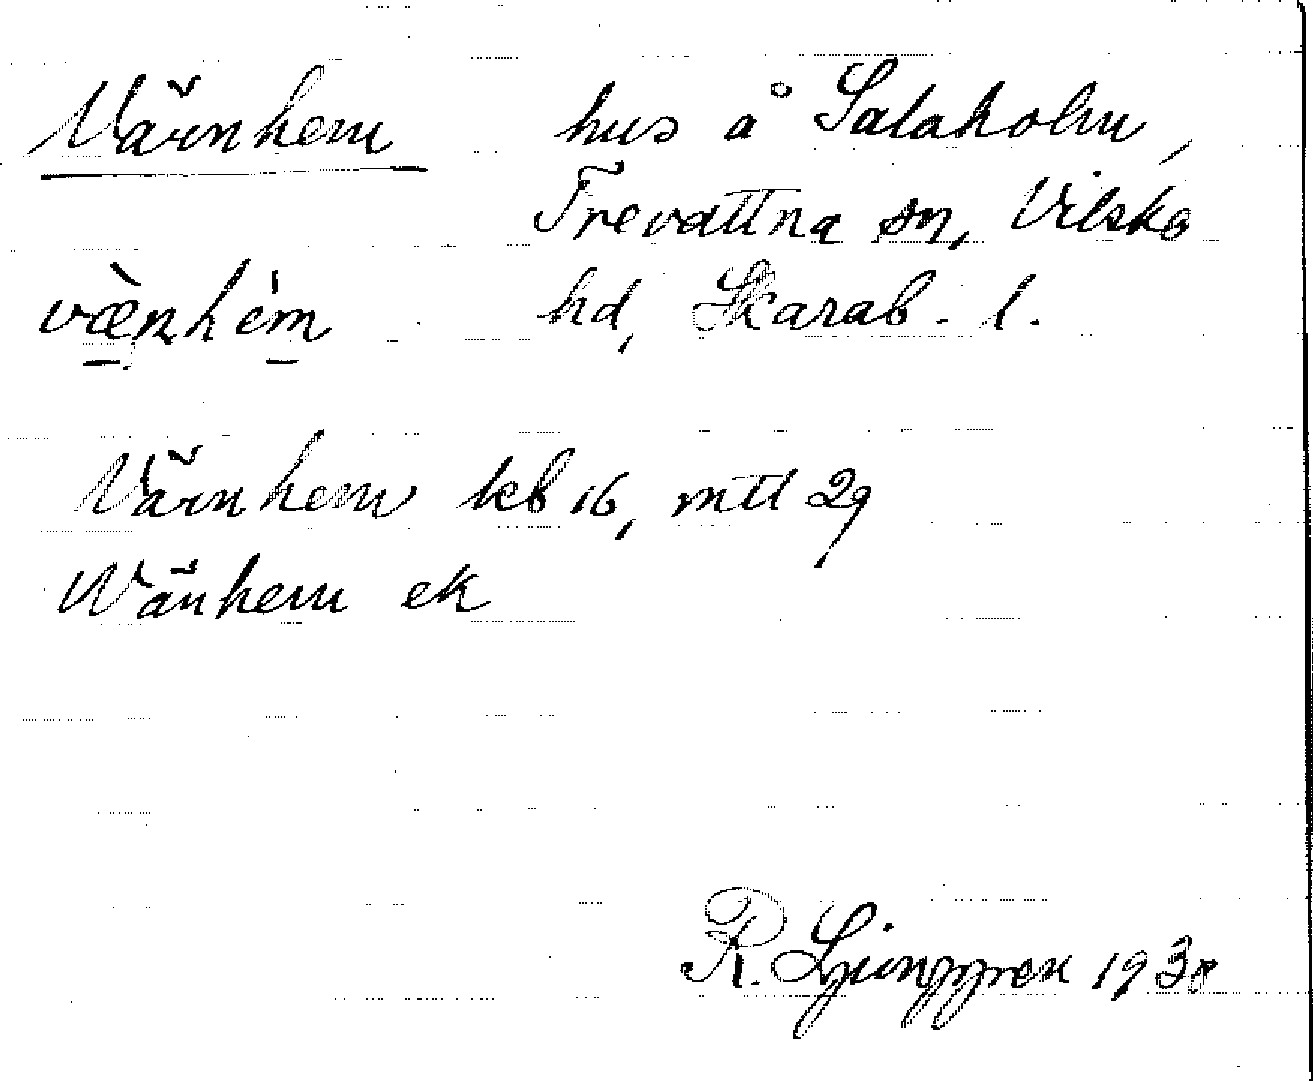 Värnhem hus å Salaholm,
Trevattna sn, Vilske
væ̀nhém hd, Skarab. l.
Värnhem kb 16, mtl 29
Wänhem ek
R. Ljunggren 1930